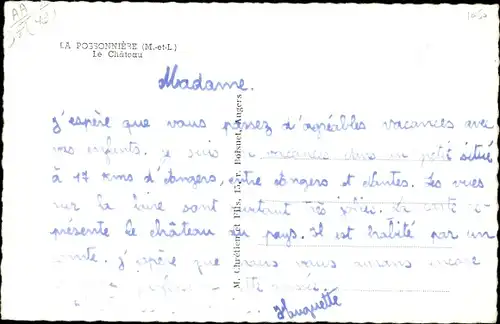 1050
LA POSSONNIÈRE (M.-et-L.)
Le Château
Madame.
J'espère que vous passez d'agréables vacances avec
vos enfants. Je suis en vacances dans un petit situé
à 17 Kms d'Angers, entre Angers et Nantes. Les vues
sur la Loire sont très jolies. La carte
présente le château du pays. Il est habité par un
comte. J'espère que nous vous aurons encore
professeur cette année.
Huguette
M. Chrétien et Fils, 15, r. Boisnet, Angers